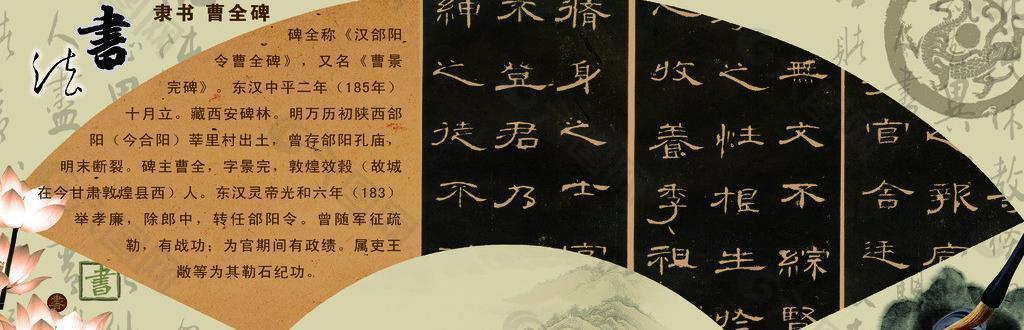 書法
隶书 曹全碑
碑全称《汉郃阳
令曹全碑》，又名《曹景
完碑》。东汉中平二年（185年）
十月立。藏西安碑林。明万历初陕西郃
阳（今合阳）莘里村出土，曾存郃阳孔庙，
明末断裂。碑主曹全，字景完，敦煌效毅（故城
在今甘肃敦煌县西）人。东汉灵帝光和六年（183）
举孝廉，除郎中，转任郃阳令。曾随军征疏
勒，有战功；为官期间有政绩。属吏王
敞等为其勒石纪功。
書
報
官舍迋
無文不綜賢
之性根生
收養季祖
脩身之士官
不登君乃
紳之徒不